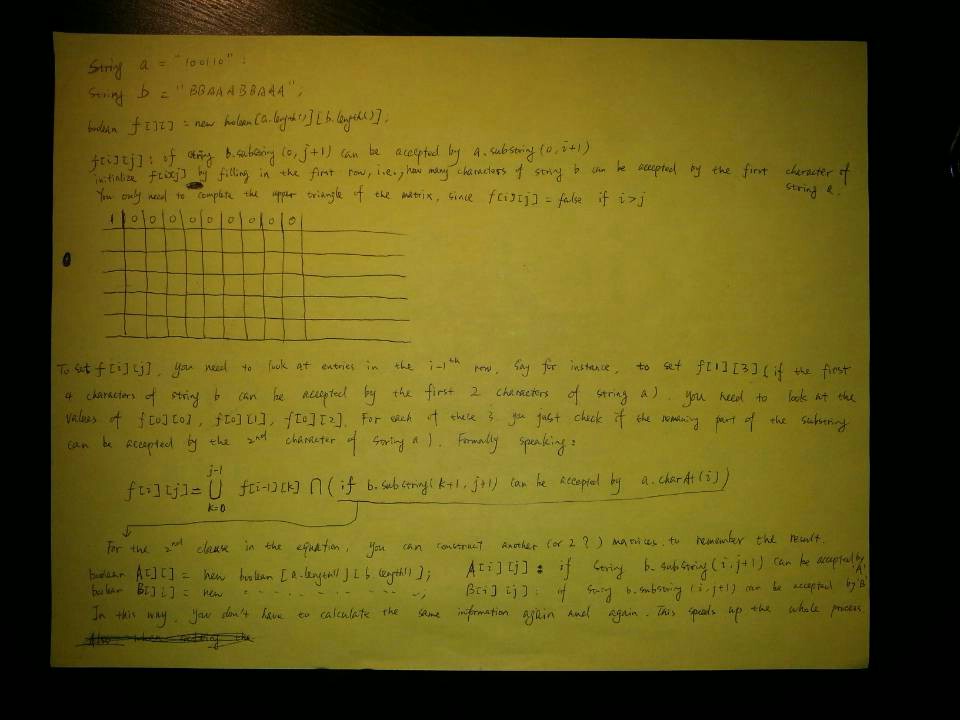 String a = "100110";
String b = "BBAAABBAAA";
boolean f[][] = new boolean[a.length()][b.length()];
f[i][j]: if string b.substring(0, j+1) can be accepted by a.substring(0, i+1)
initialize f[i][j] by filling in the first row, i.e., how many characters of string b can be accepted by the first character of string a.
You only need to complete the upper triangle of the matrix, since f[i][j] = false if i>j
1 0 0 0 0 0 0 0 0 0
To set f[i][j], you need to look at entries in the i-1th row. Say for instance, to set f[1][3] (if the first
4 characters of string b can be accepted by the first 2 characters of string a). you need to look at the
values of f[0][0], f[0][1], f[0][2]. For each of these 3. you just check if the remaining part of the substring
can be accepted by the 2nd character of string a). Formally speaking:
j-1
f[i][j]= ⋃ f[i-1][k] ∩ (if b.substring(k+1, j+1) can be accepted by a.charAt(i))
k=0
For the 2nd clause in the equation, you can construct another (or 2?) matrices to remember the result.
boolean A[][] = new boolean [a.length()][b.length()]; A[i][j]: if string b.substring(i,j+1) can be accepted by 'A'
boolean B[][] = new - - - - - - - - -; B[i][j]: if string b.substring(i,j+1) can be accepted by 'B'
In this way, you don't have to calculate the same information again and again. This speeds up the whole process.